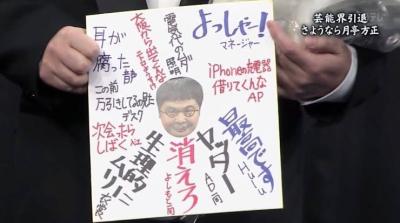 芸能界引退
さようなら月亭方正
よっしゃー!
マネージャー
iPhoneの充電器
借りてくんな
AP
最高です
Hulu
ヤッター
AD一同
電気代のムダ
照明
消えろ
よしもと一同
大阪から出てくんな
生理的に
ムリ!!
耳が
腐った
この前
万引きしてるの見た
デスク
次会ったら
しばく